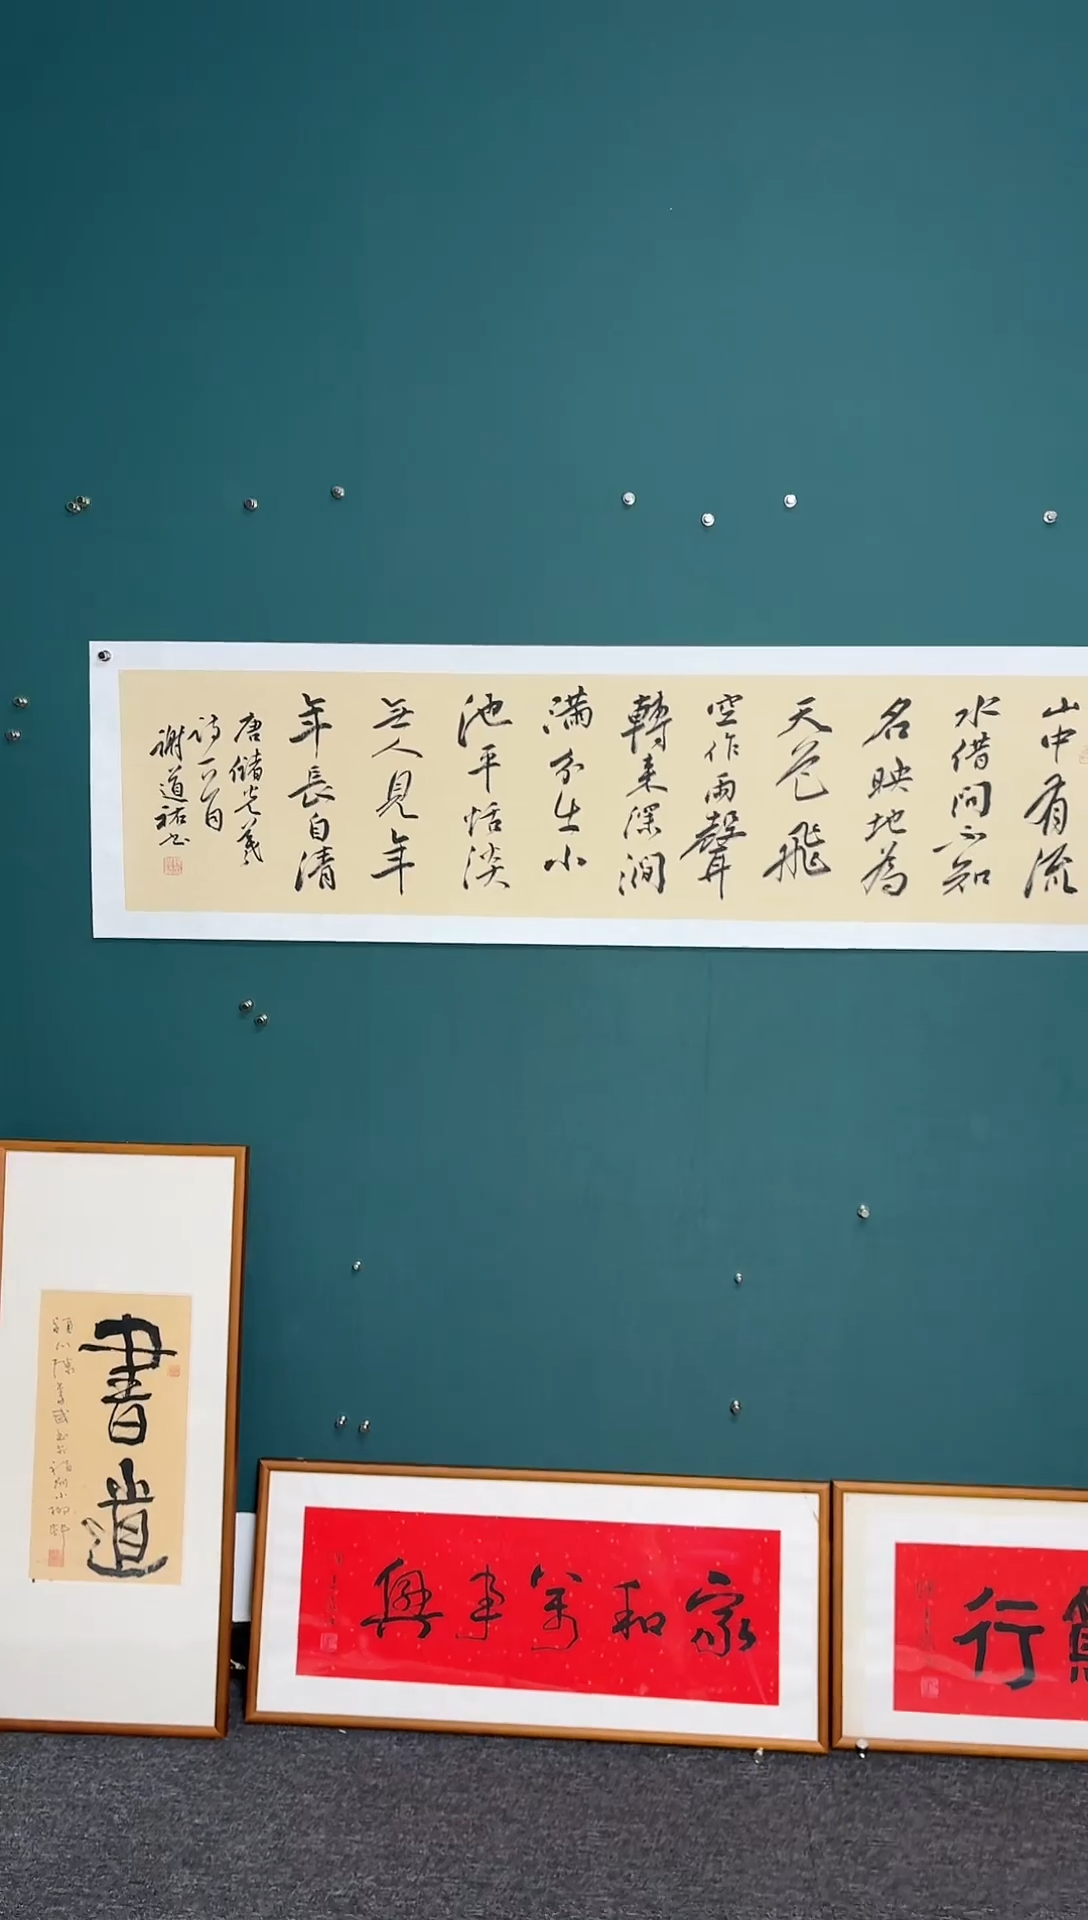 山中有流
水借问不知
名映地為
天色飛
空作雨聲
轉来深澗
满分生小
池平恬淡
无人見年
年長自清
唐儲光羲
诗一首
謝道祐书
書道
家和萬事興
行